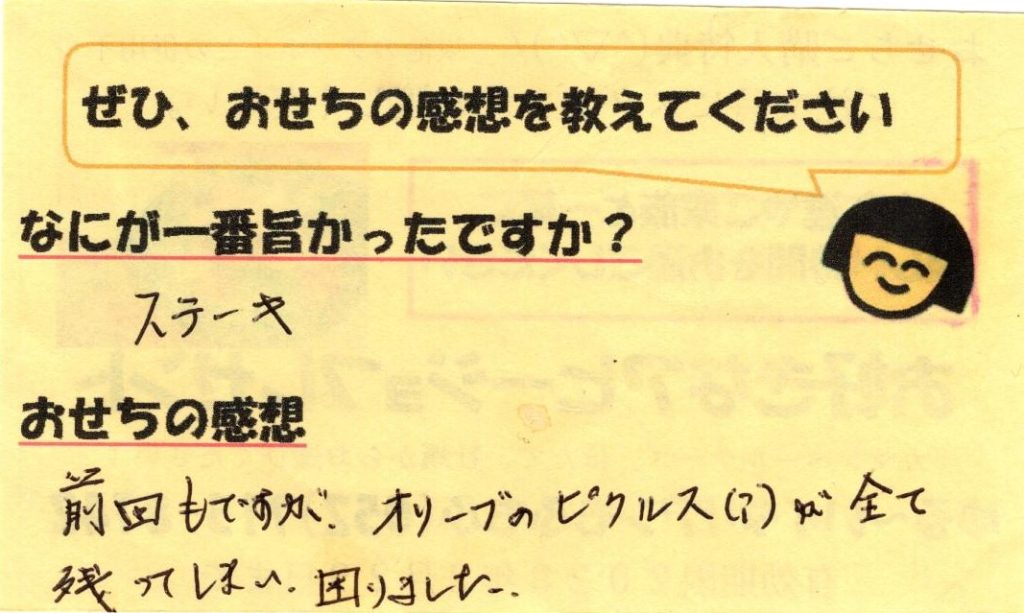 ぜひ、おせちの感想を教えてください
なにが一番旨かったですか？
ステーキ
おせちの感想
前回もですが、オリーブのピクルス(?)が全て
残ってしまい、困りました。